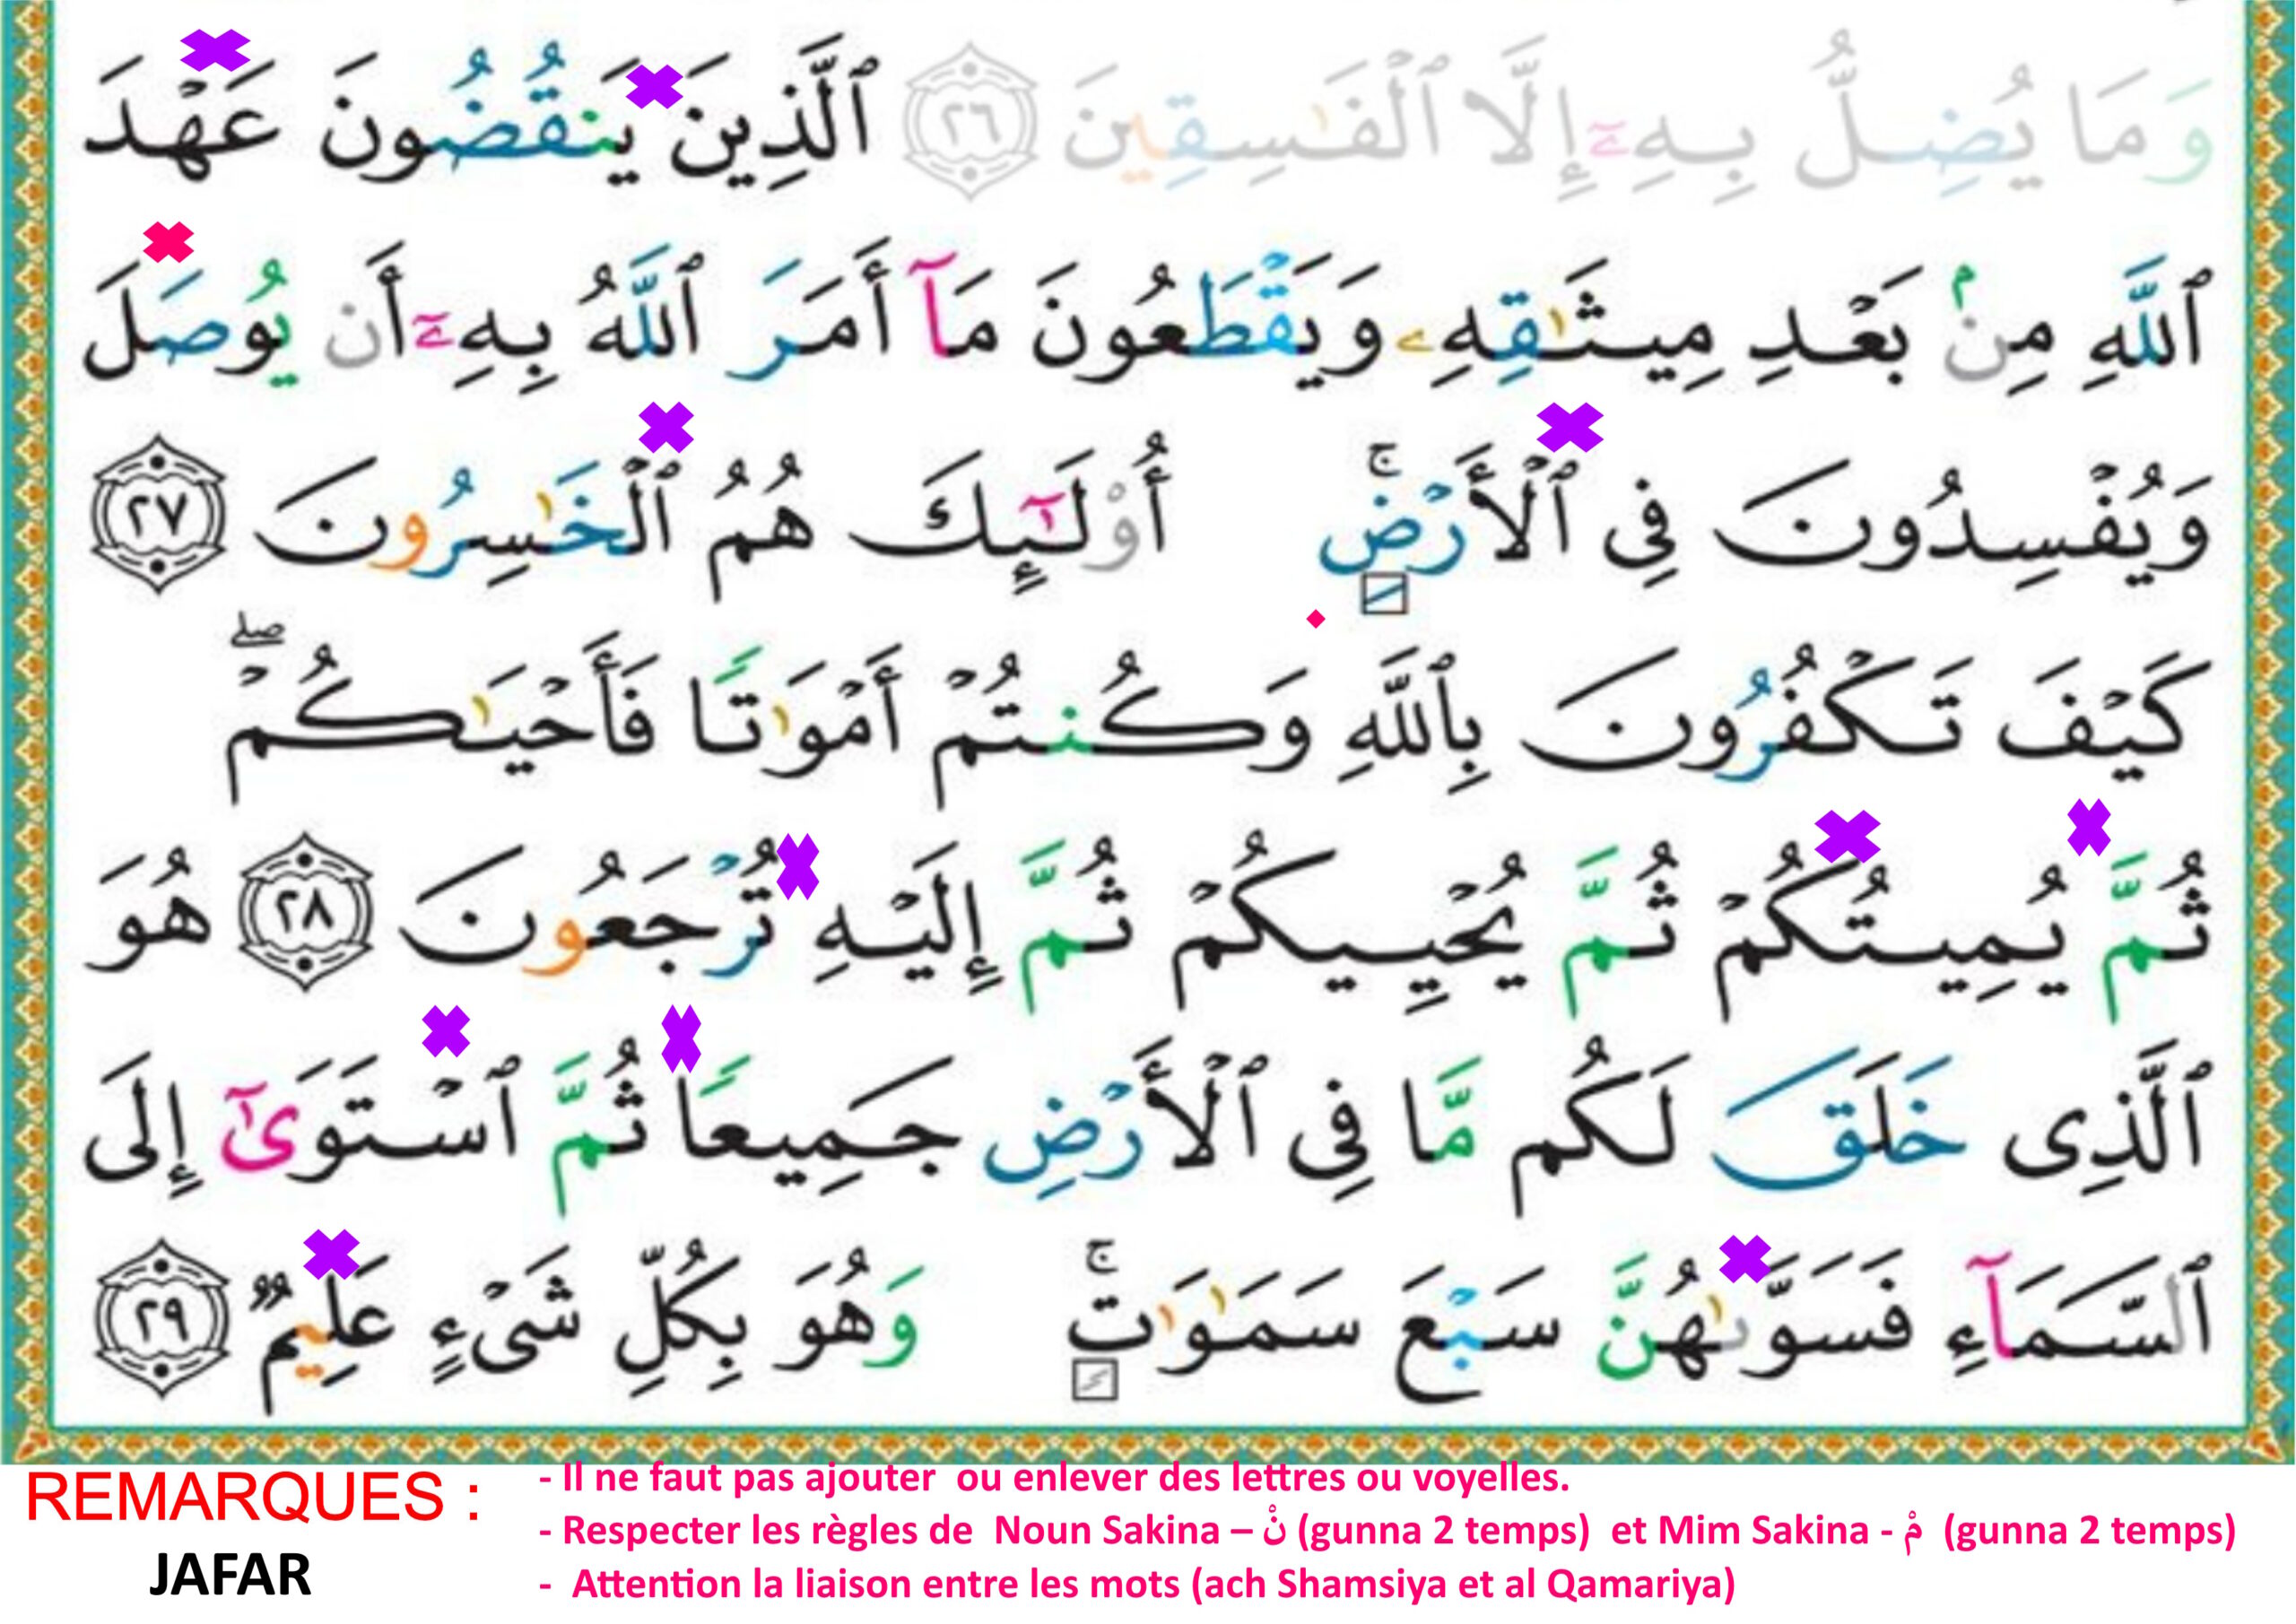 وَمَا يُضِلُّ بِهِۦٓ إِلَّا ٱلْفَـٰسِقِينَ ٢٦ ٱلَّذِينَ يَنقُضُونَ عَهْدَ
ٱللَّهِ مِنۢ بَعْدِ مِيثَـٰقِهِۦ وَيَقْطَعُونَ مَآ أَمَرَ ٱللَّهُ بِهِۦٓ أَن يُوصَلَ
وَيُفْسِدُونَ فِى ٱلْأَرْضِ ۚ أُو۟لَـٰٓئِكَ هُمُ ٱلْخَـٰسِرُونَ ٢٧
كَيْفَ تَكْفُرُونَ بِٱللَّهِ وَكُنتُمْ أَمْوَٰتًا فَأَحْيَـٰكُمْ ۖ
ثُمَّ يُمِيتُكُمْ ثُمَّ يُحْيِيكُمْ ثُمَّ إِلَيْهِ تُرْجَعُونَ ٢٨ هُوَ
ٱلَّذِى خَلَقَ لَكُم مَّا فِى ٱلْأَرْضِ جَمِيعًا ثُمَّ ٱسْتَوَىٰٓ إِلَى
ٱلسَّمَآءِ فَسَوَّىٰهُنَّ سَبْعَ سَمَـٰوَٰت ۚ وَهُوَ بِكُلِّ شَىْءٍ عَلِيمٌ ٢٩
REMARQUES :
JAFAR
- Il ne faut pas ajouter ou enlever des lettres ou voyelles.
- Respecter les règles de Noun Sakina – نْ (gunna 2 temps) et Mim Sakina - مْ (gunna 2 temps)
- Attention la liaison entre les mots (ach Shamsiya et al Qamariya)